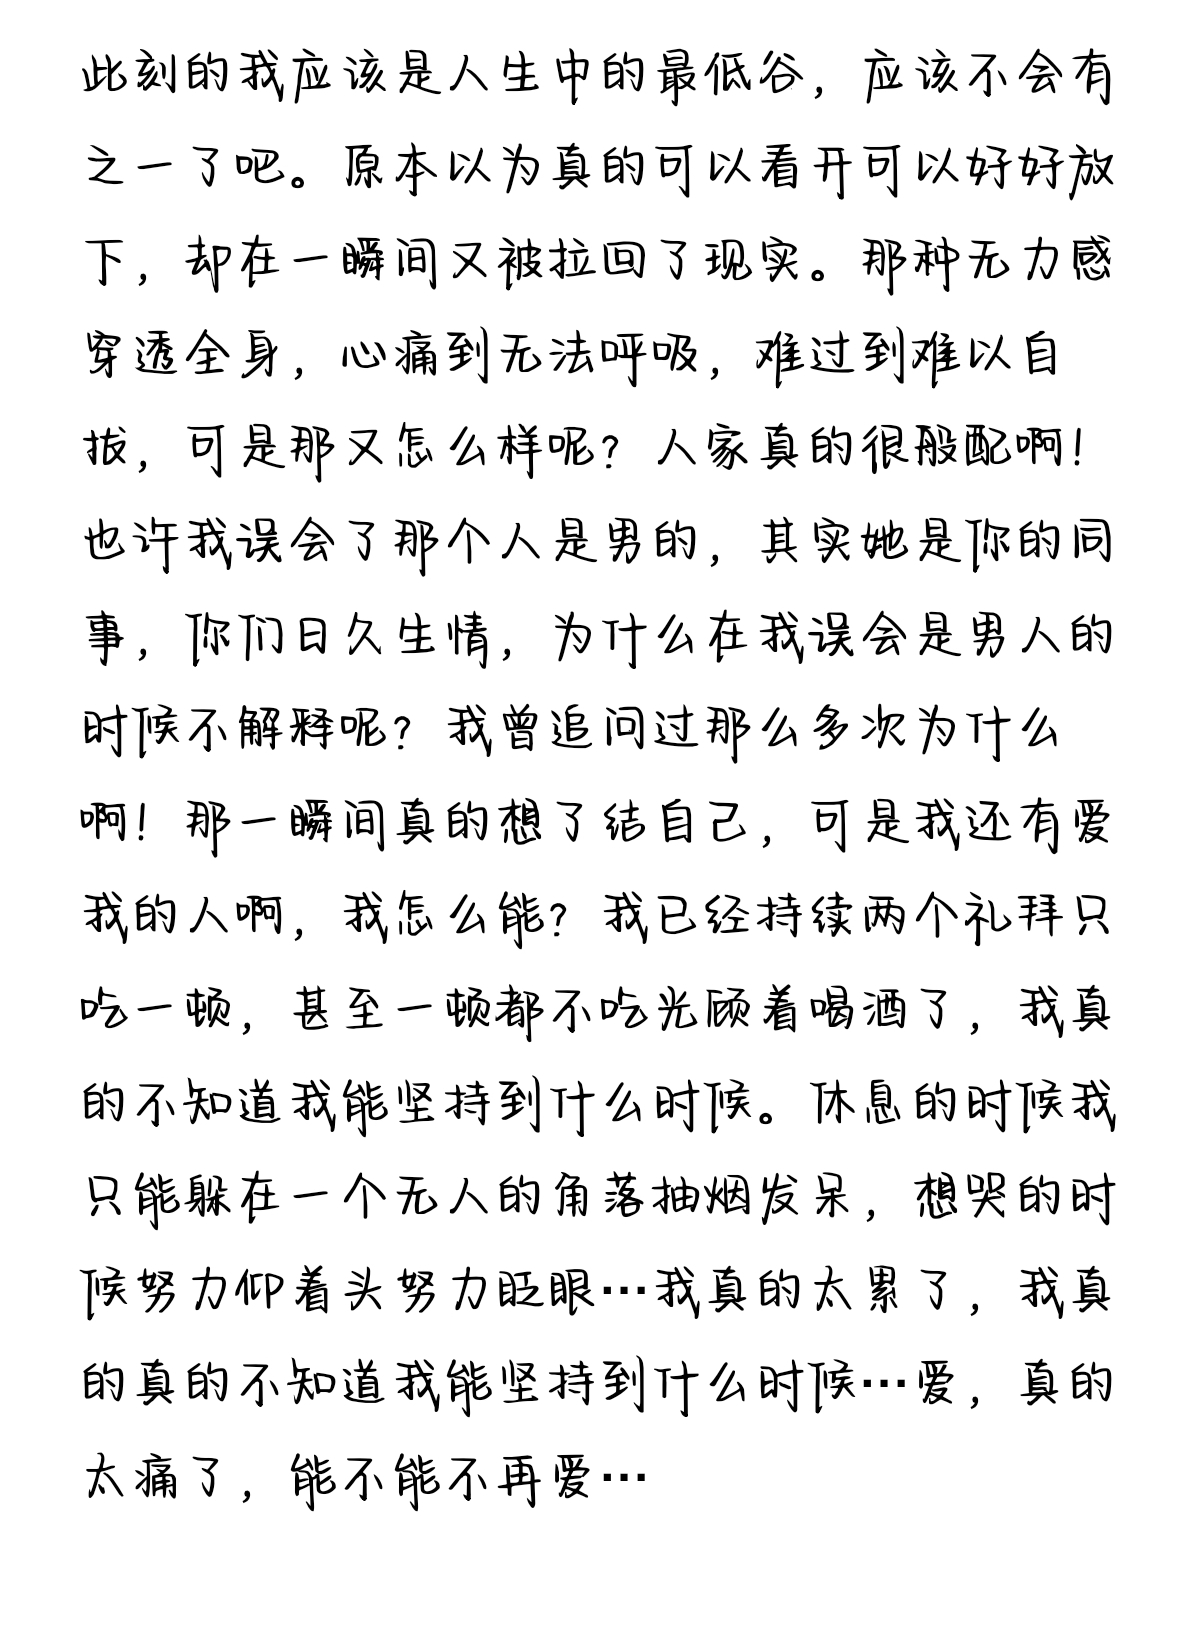 此刻的我应该是人生中的最低谷，应该不会有
之一了吧。原本以为真的可以看开可以好好放
下，却在一瞬间又被拉回了现实。那种无力感
穿透全身，心痛到无法呼吸，难过到难以自
拔，可是那又怎么样呢？人家真的很般配啊！
也许我误会了那个人是男的，其实她是你的同
事，你们日久生情，为什么在我误会是男人的
时候不解释呢？我曾追问过那么多次为什么
啊！那一瞬间真的想了结自己，可是我还有爱
我的人啊，我怎么能？我已经持续两个礼拜只
吃一顿，甚至一顿都不吃光顾着喝酒了，我真
的不知道我能坚持到什么时候。休息的时候我
只能躲在一个无人的角落抽烟发呆，想哭的时
候努力仰着头努力眨眼…我真的太累了，我真
的真的不知道我能坚持到什么时候…爱，真的
太痛了，能不能不再爱…